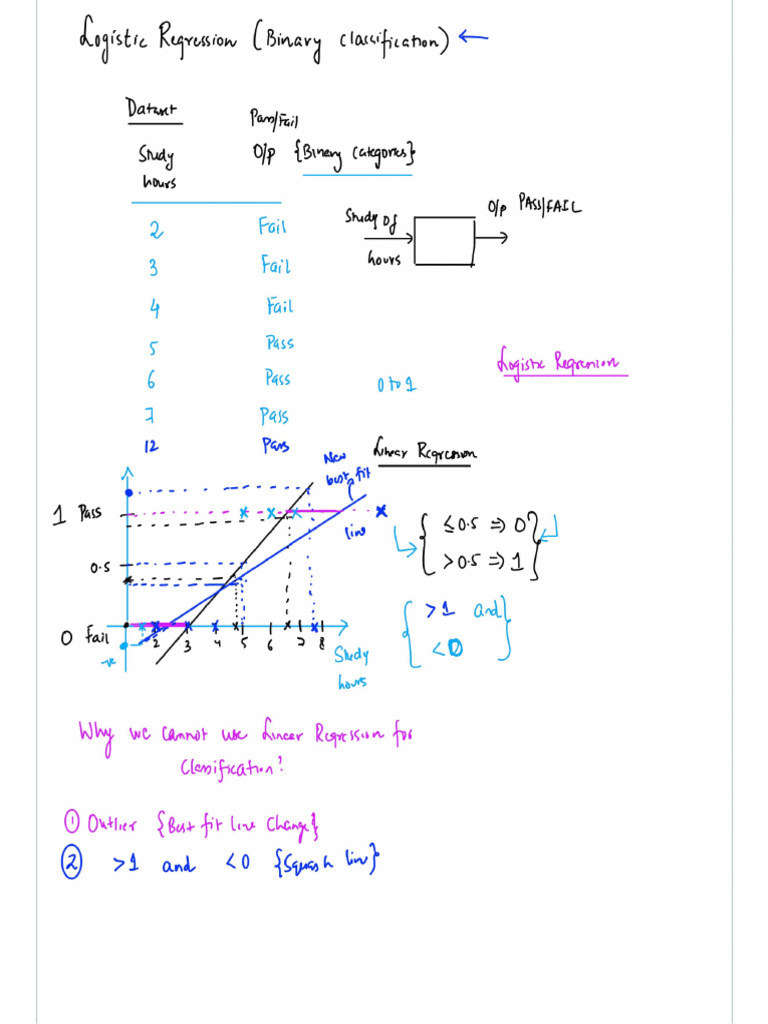 Logistic Regression (Binary classification) ←
Dataset
Pass/Fail
Study hours
O/P {Binary categories}
2 Fail
3 Fail
4 Fail
5 Pass
6 Pass
7 Pass
12 Pass
Study of hours
O/P PASS/FAIL
0 to 1
Logistic Regression
Linear Regression
New best fit line
1 Pass
0.5
0 Fail
-ve
2 3 4 5 6 7 8
Study hours
≤ 0.5 => 0
> 0.5 => 1
> 1 and
< 0
Why we cannot use Linear Regression for
Classification?
① Outlier {Best fit line change}
② >1 and <0 {Squash line}